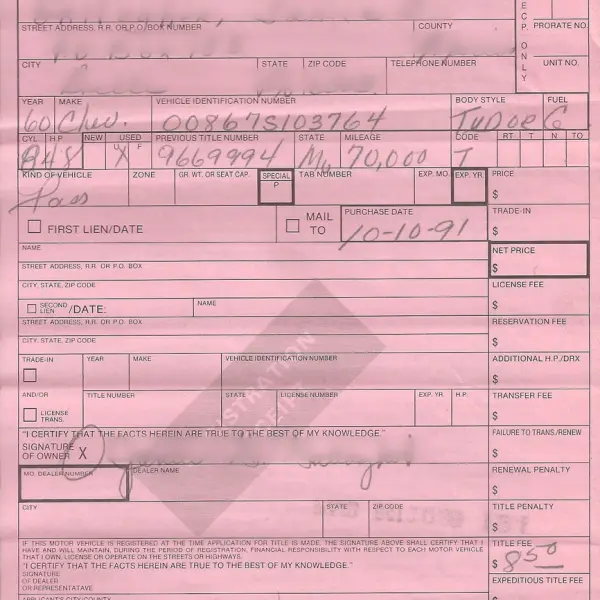 STREET ADDRESS, R.R. OR P.O. BOX NUMBER COUNTY
E C P. ONLY
PRORATE NO.
CITY STATE ZIP CODE TELEPHONE NUMBER
UNIT NO.
YEAR MAKE VEHICLE IDENTIFICATION NUMBER BODY STYLE FUEL
60 Chev. 00867S103764 TuDoe G
CYL H.P. NEW USED PREVIOUS TITLE NUMBER STATE MILEAGE CODE RT T N TO
F
8 48 X 9669994 Mo 70,000 T
KIND OF VEHICLE ZONE GR. WT. OR SEAT CAP. SPECIAL P TAB NUMBER EXP. MO. EXP. YR. PRICE
Pass $
FIRST LIEN/DATE MAIL TO PURCHASE DATE TRADE-IN
10-10-91 $
NAME NET PRICE
STREET ADDRESS, R.R. OR P.O. BOX $
CITY, STATE, ZIP CODE LICENSE FEE
SECOND LIEN /DATE: NAME $
STREET ADDRESS, R.R. OR P.O. BOX RESERVATION FEE
CITY, STATE, ZIP CODE $
TRADE-IN YEAR MAKE VEHICLE IDENTIFICATION NUMBER ADDITIONAL H.P./DRX
$
AND/OR TITLE NUMBER STATE LICENSE NUMBER EXP. YR. H.P. TRANSFER FEE
LICENSE TRANS. $
"I CERTIFY THAT THE FACTS HEREIN ARE TRUE TO THE BEST OF MY KNOWLEDGE." FAILURE TO TRANS./RENEW
SIGNATURE OF OWNER X $
MO. DEALER NUMBER DEALER NAME RENEWAL PENALTY
$
CITY STATE ZIP CODE TITLE PENALTY
$
IF THIS MOTOR VEHICLE IS REGISTERED AT THE TIME APPLICATION FOR TITLE IS MADE, THE SIGNATURE ABOVE SHALL CERTIFY THAT I TITLE FEE
HAVE AND WILL MAINTAIN, DURING THE PERIOD OF REGISTRATION, FINANCIAL RESPONSIBILITY WITH RESPECT TO EACH MOTOR VEHICLE
THAT I OWN, LICENSE OR OPERATE ON THE STREETS OR HIGHWAYS. $ 8 50
"I CERTIFY THAT THE FACTS HEREIN ARE TRUE TO THE BEST OF MY KNOWLEDGE."
SIGNATURE OF DEALER OR REPRESENTATAVE EXPEDITIOUS TITLE FEE
APPLICANT'S CITY/COUNTY $